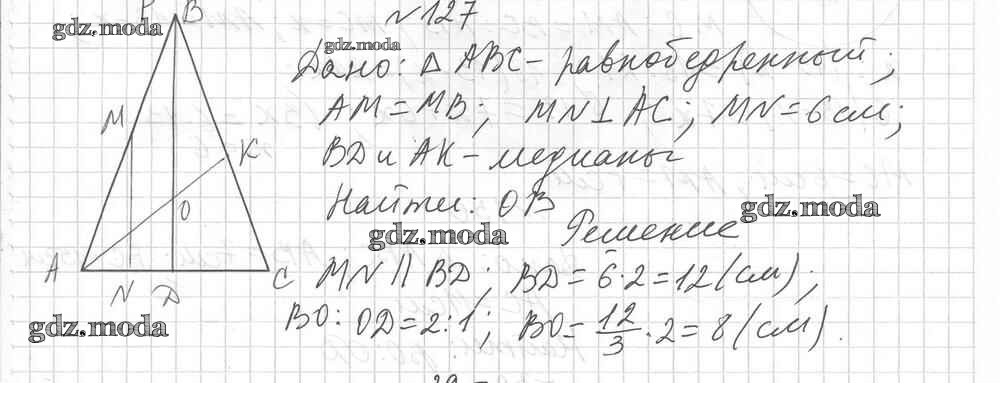 №127
Дано: Δ ABC – равнобедренный;
AM = MB; MN ⊥ AC; MN = 6 см;
BD и AK – медианы
Найти: OB
Решение
MN || BD; BD = 6·2 = 12 (см);
BO : OD = 2:1; BO = 12/3 · 2 = 8 (см).
B
M
K
O
A
C
N
D
gdz.moda
gdz.moda
gdz.moda
gdz.moda
gdz.moda